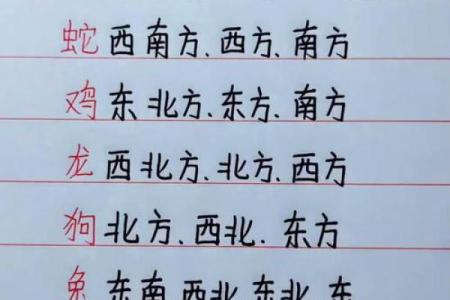 蛇西南方、西方、南方
鸡东北方、东方、南方
龙西北方、北方、西方
狗北方、西北、东方
兔东南西北东北东